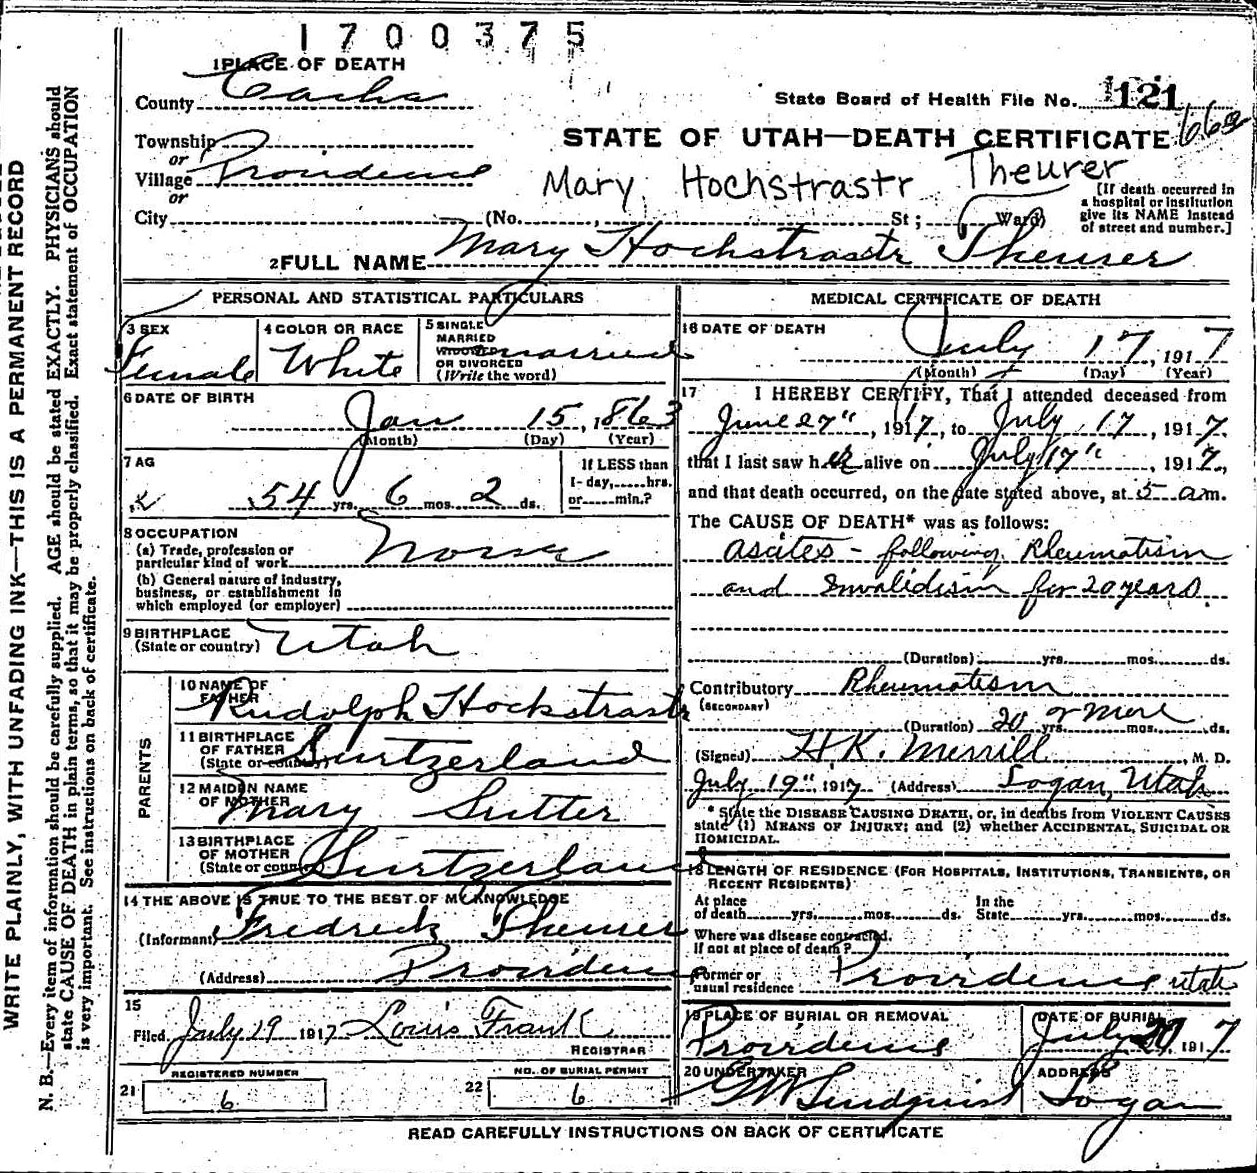 1700375
1 PLACE OF DEATH
County Cache
State Board of Health File No. 121
Township
or
Village Providence
or
City (No. , St ; Ward)
STATE OF UTAH—DEATH CERTIFICATE
Mary Hochstrastr Theurer
[If death occurred in
a hospital or institution
give its NAME instead
of street and number.]
2 FULL NAME Mary Hochstrastr Theurer
PERSONAL AND STATISTICAL PARTICULARS
3 SEX
Female
4 COLOR OR RACE
White
5 SINGLE
MARRIED
WIDOWED
OR DIVORCED
(Write the word)
married
6 DATE OF BIRTH
Jan 15, 1863
(Month) (Day) (Year)
7 AG
54 yrs. 6 mos. 2 ds.
If LESS than
1-day,......hrs.
or......min.?
8 OCCUPATION
(a) Trade, profession or
particular kind of work
(b) General nature of industry,
business, or establishment in
which employed (or employer)
9 BIRTHPLACE
(State or country) Utah
PARENTS
10 NAME OF
FATHER
Rudolph Hockstrastr
11 BIRTHPLACE
OF FATHER
(State or country)
Surtzerland
12 MAIDEN NAME
OF MOTHER
Mary Sutter
13 BIRTHPLACE
OF MOTHER
(State or country)
Surtzerland
14 THE ABOVE IS TRUE TO THE BEST OF MY KNOWLEDGE
(Informant) Fredrick Theurer
(Address) Providence
15
Filed July 19 1917 Louis Frank
REGISTRAR
21 REGISTERED NUMBER
6
22 NO. OF BURIAL PERMIT
6
MEDICAL CERTIFICATE OF DEATH
16 DATE OF DEATH
July 17, 1917
(Month) (Day) (Year)
17 I HEREBY CERTIFY, That I attended deceased from
June 27", 1917, to July 17, 1917.
that I last saw her alive on July 17", 1917,
and that death occurred, on the date stated above, at 5 am.
The CAUSE OF DEATH* was as follows:
Ascites - following Rheumatism
and Invalidism for 20 years.
(Duration) yrs. mos. ds.
Contributory Rheumatism
(SECONDARY)
(Duration) 20 yrs. or more mos. ds.
(Signed) H.K. Merrill, M. D.
July 19", 1917 (Address) Logan, Utah
* State the DISEASE CAUSING DEATH, or, in deaths from VIOLENT CAUSES
state (1) MEANS OF INJURY; and (2) whether ACCIDENTAL, SUICIDAL OR
HOMICIDAL.
18 LENGTH OF RESIDENCE (FOR HOSPITALS, INSTITUTIONS, TRANSIENTS, OR
RECENT RESIDENTS)
At place
of death yrs. mos. ds.
In the
State yrs. mos. ds.
Where was disease contracted,
if not at place of death?
Former or
usual residence Providence Utah
19 PLACE OF BURIAL OR REMOVAL
Providence
DATE OF BURIAL
July 20, 1917
20 UNDERTAKER
GW Lindquist
ADDRESS
Logan
READ CAREFULLY INSTRUCTIONS ON BACK OF CERTIFICATE
WRITE PLAINLY, WITH UNFADING INK—THIS IS A PERMANENT RECORD
N. B.—Every item of information should be carefully supplied. AGE should be stated EXACTLY. PHYSICIANS should
state CAUSE OF DEATH in plain terms, so that it may be properly classified. Exact statement of OCCUPATION
is very important. See instructions on back of certificate.